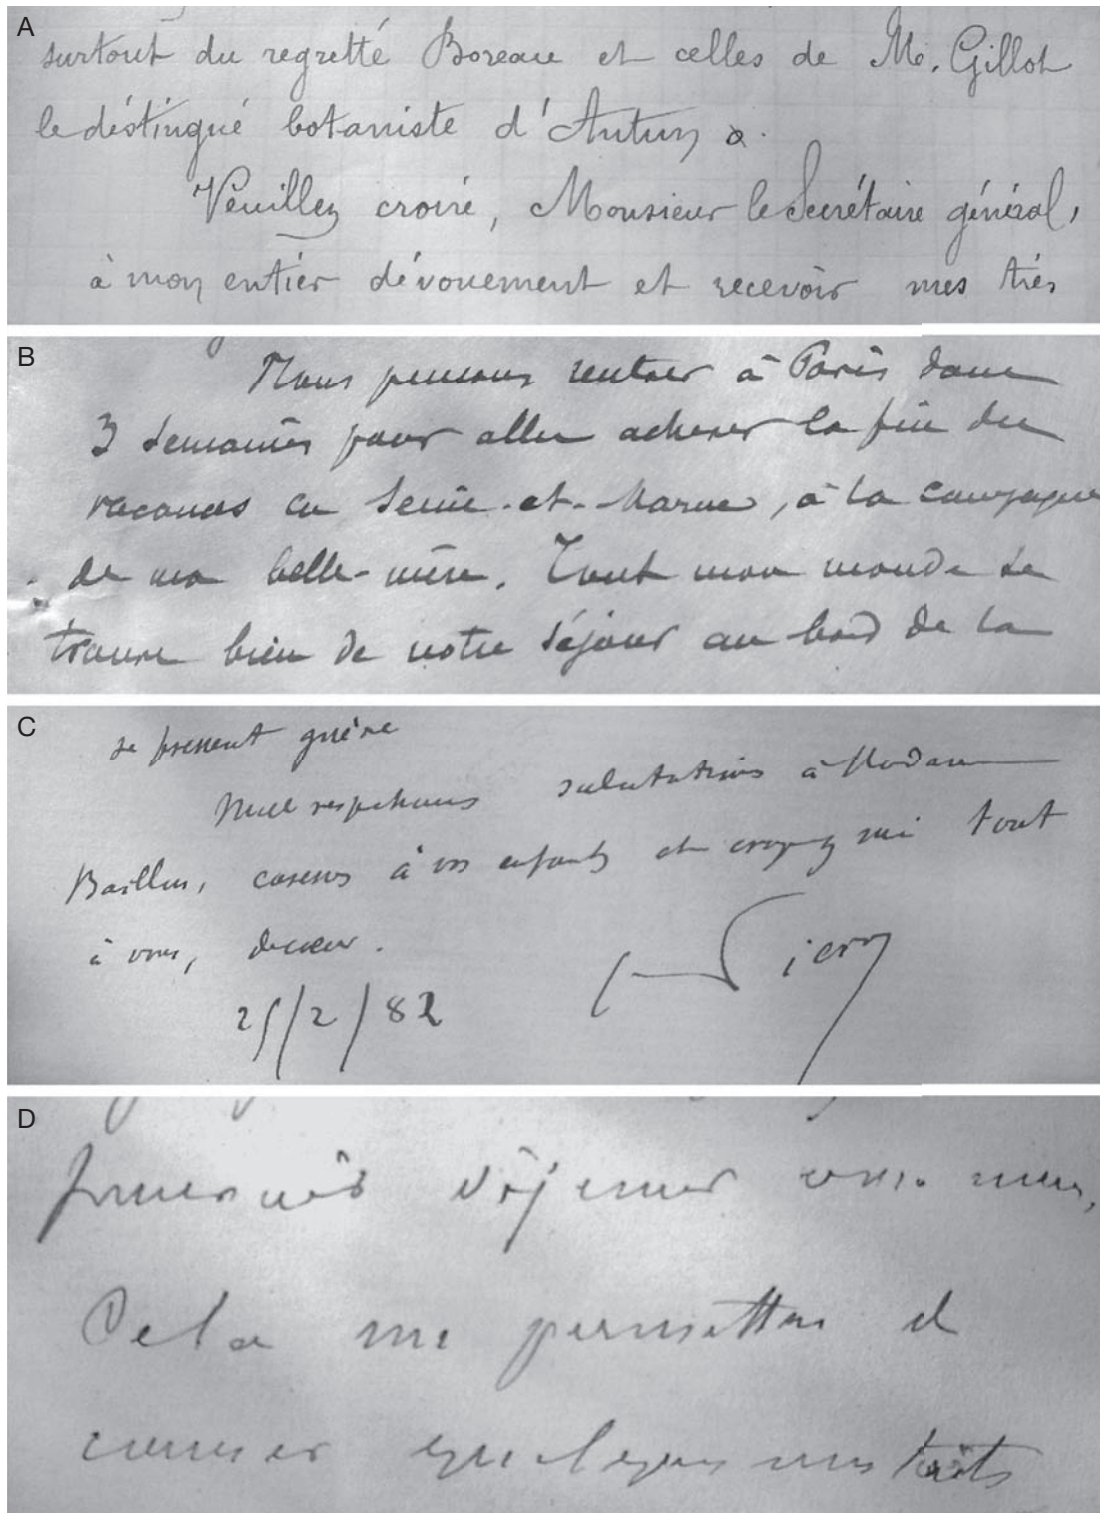 A
surtout du regretté Boreau et celles de M. Gillot
le distingué botaniste d'Autun
Veuillez croire, Monsieur le Secrétaire général,
à mon entier dévouement et recevoir mes très
B
Nous pensons rentrer à Paris dans
3 semaines pour aller achever la fin des
vacances en Seine-et-Marne, à la campagne
de ma belle-mère. Tout mon monde se
trouve bien de notre séjour au bord de la
C
se pressent guère
Mille respectueuses salutations à Madame
Baillon, caresses à vos enfants et croyez moi tout
à vous, de cœur.
25/2/82
D
déjeuner
Cela me permettra
causer quelques